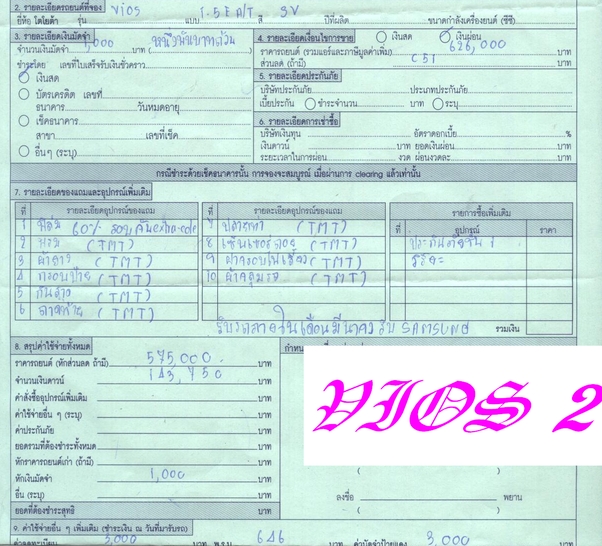 2. รายละเอียดรถยนต์ที่จอง vios 1.5E A/T SV
ยี่ห้อ โตโยต้า รุ่น แบบ สี ปีที่ผลิต ขนาดกำลังเครื่องยนต์ (ซีซี)
3. รายละเอียดเงินมัดจำ
จำนวนเงินมัดจำ 1,000 บาท (หนึ่งพันบาทถ้วน
ชำระโดย เลขที่ใบเสร็จรับเงินชั่วคราว
เงินสด
บัตรเครดิต เลขที่
ธนาคาร วันหมดอายุ
เช็คธนาคาร
สาขา เลขที่เช็ค
อื่นๆ (ระบุ)
4. รายละเอียดเงื่อนไขการขาย เงินสด เงินผ่อน
ราคารถยนต์ (รวมแอร์และภาษีมูลค่าเพิ่ม) 626,000 บาท
ส่วนลด (ถ้ามี) C51 บาท
5. รายละเอียดประกันภัย
บริษัทประกันภัย ประเภทประกันภัย
เบี้ยประกัน ชำระจำนวน บาท ระบุ
6. รายละเอียดการเช่าซื้อ
บริษัทเงินทุน อัตราดอกเบี้ย %
เงินดาวน์ บาท ยอดเงินผ่อน บาท
ระยะเวลาในการผ่อน งวด ผ่อนงวดละ บาท
กรณีชำระด้วยเช็คธนาคารนั้น การจองจะสมบูรณ์ เมื่อผ่านการ clearing แล้วเท่านั้น
7. รายละเอียดของแถมและอุปกรณ์เพิ่มเติม
ที่ รายละเอียดอุปกรณ์ของแถม
1 ฟิล์ม 60% รอบคัน extra-cole
2 พรม (TMT)
3 ผ้ายาง (TMT)
4 กรอบป้าย (TMT)
5 กันสาด (TMT)
6 ถาดท้าย (TMT)
ที่ รายละเอียดอุปกรณ์ของแถม
7 ปลายท่อ (TMT)
8 เซ็นเซอร์ถอย (TMT)
9 (TMT)
10 ผ้าคลุมรถ (TMT)
รายการซื้อเพิ่มเติม
ที่ อุปกรณ์ ราคา
ประกันภัยชั้น 1
รับรถภายในเดือนมีนาคม รับ SAMSUNG รวมเงิน
8. สรุปค่าใช้จ่ายทั้งหมด
ราคารถยนต์ (หักส่วนลด ถ้ามี) 575,000 บาท
จำนวนเงินดาวน์ 143,750 บาท
ค่าสั่งซื้ออุปกรณ์เพิ่มเติม บาท
ค่าใช้จ่ายอื่น ๆ (ระบุ) บาท
ค่าประกันภัย บาท
ยอดรวมที่ต้องชำระทั้งหมด บาท
หักราคารถยนต์เก่า (ถ้ามี) บาท
หักเงินมัดจำ 1,000 บาท
อื่น (ระบุ) บาท
ยอดที่ต้องชำระสุทธิ บาท
VIOS 2
( )
ลงชื่อ พยาน
( )
9. ค่าใช้จ่ายอื่น ๆ เพิ่มเติม (ชำระเงิน ณ วันที่มารับรถ)
ค่าจดทะเบียน 3,000 บาท พ.ร.บ. 646 บาท ค่ามัดจำป้ายแดง 3,000